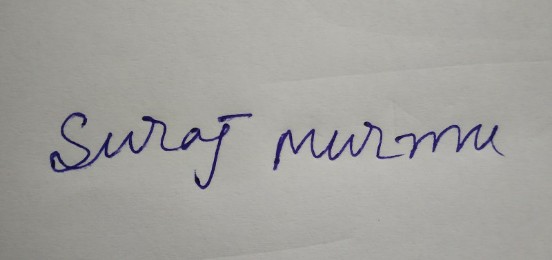 Suraj Murmu